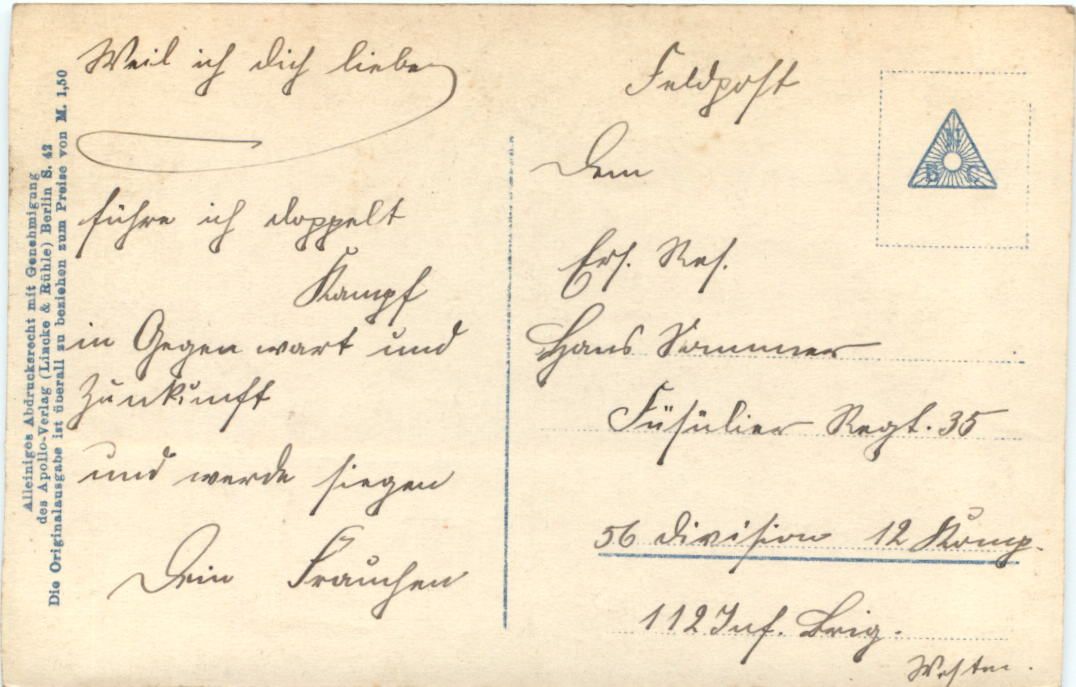 Alleiniges Abdrucksrecht mit Genehmigung
des Apollo-Verlag (Lincke & Rühle) Berlin S. 42
Die Originalausgabe ist überall zu beziehen zum Preise von M. 1,50
Weil ich dich liebe
führe ich doppelt
Kampf
in Gegenwart und
Zunkunft
und werde siegen
Dein Frauchen
Feldpost
Dem
Ers. Res.
Hans Sommer
Füsülier Regt. 35
56 Division 12 Komp.
112 Inf. Brig.
Westen.